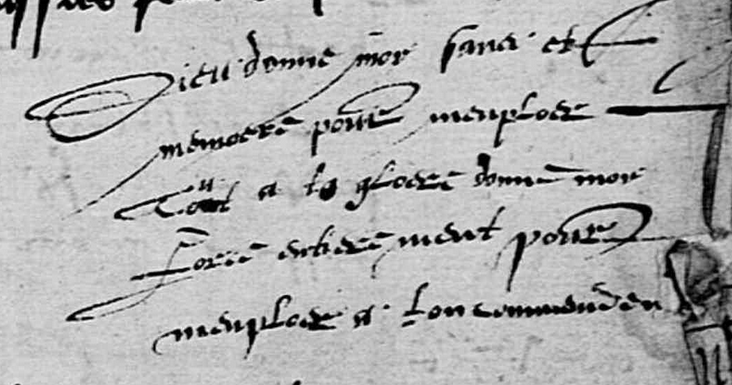 Dieu donne moy sans et
memoere pour meuploer
Tout a ta gloere donne moy
Force entierement pour
meuploer a ton commenden